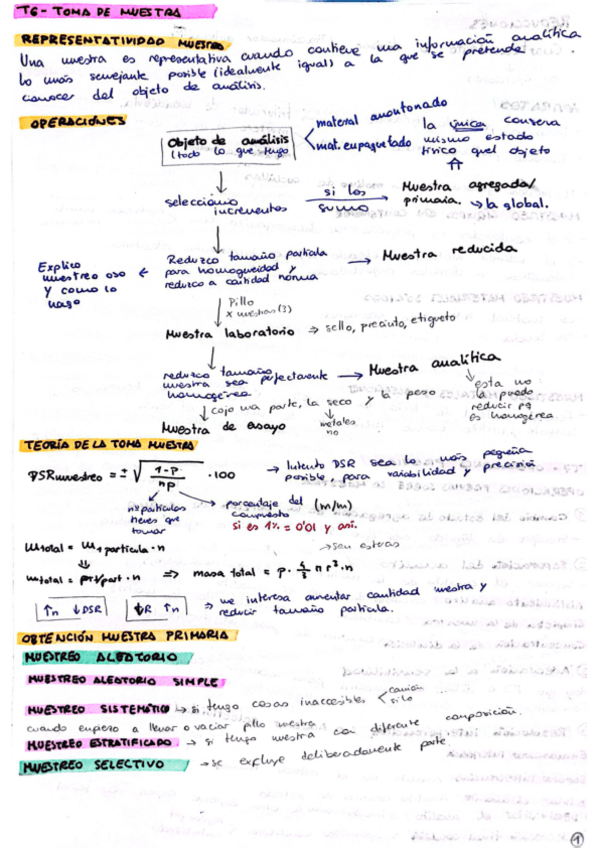 T6 - TOMA DE MUESTRA
REPRESENTATIVIDAD MUESTRA
Una muestra es representativa cuando contiene una información analítica
lo más semejante posible (idealmente igual) a la que se pretende
conocer del objeto de análisis.
OPERACIONES
Objeto de análisis
(todo lo que tengo
material amontonado
mat. empaquetado
la única conserva
mismo estado
físico que el objeto
selecciono
incrementos
si los
sumo
Muestra agregada/
primaria. → la global.
Explico
muestreo oso
y como lo
hago
Reduzco tamaño partícula
para homogueidad y
reduzco a cantidad norma
→ Muestra reducida
Pillo
x muestras (3)
Muestra laboratorio → sello, precinto, etiqueto
reduzco tamaño
muestra sea perfectamente
homogénea
→ Muestra analítica
esta no
la puedo
reducir pq
es homogénea
cojo una parte, la seco y la peso
Muestra de ensayo
metales
no
TEORÍA DE LA TOMA MUESTRA
DSRmuestreo = ± √ 1-P / np · 100
→ Intento DSR sea lo más pequeña
posible, para variabilidad y precisión
nº partículas
tienes que
tomar
porcentaje del (m/m)
compuesto
si es 1% = 0'01 y así.
mtotal = m1 partícula · n
→ son esferas
mtotal = ρ · V part · n ⇒ masa total = ρ · 4/3 π r³ · n
↑n ↓DSR
↓R ↑n
⇒ me interesa aumentar cantidad muestra y
reducir tamaño partícula.
OBTENCIÓN MUESTRA PRIMARIA
MUESTREO ALEATORIO
MUESTREO ALEATORIO SIMPLE
MUESTREO SISTEMÁTICO → si tengo cosas inaccesibles
camión
silo
cuando empiezo a llevar o vaciar pillo muestra
MUESTREO ESTRATIFICADO → si tengo muestra con diferente composición.
MUESTREO SELECTIVO → se excluye deliberadamente parte.
1